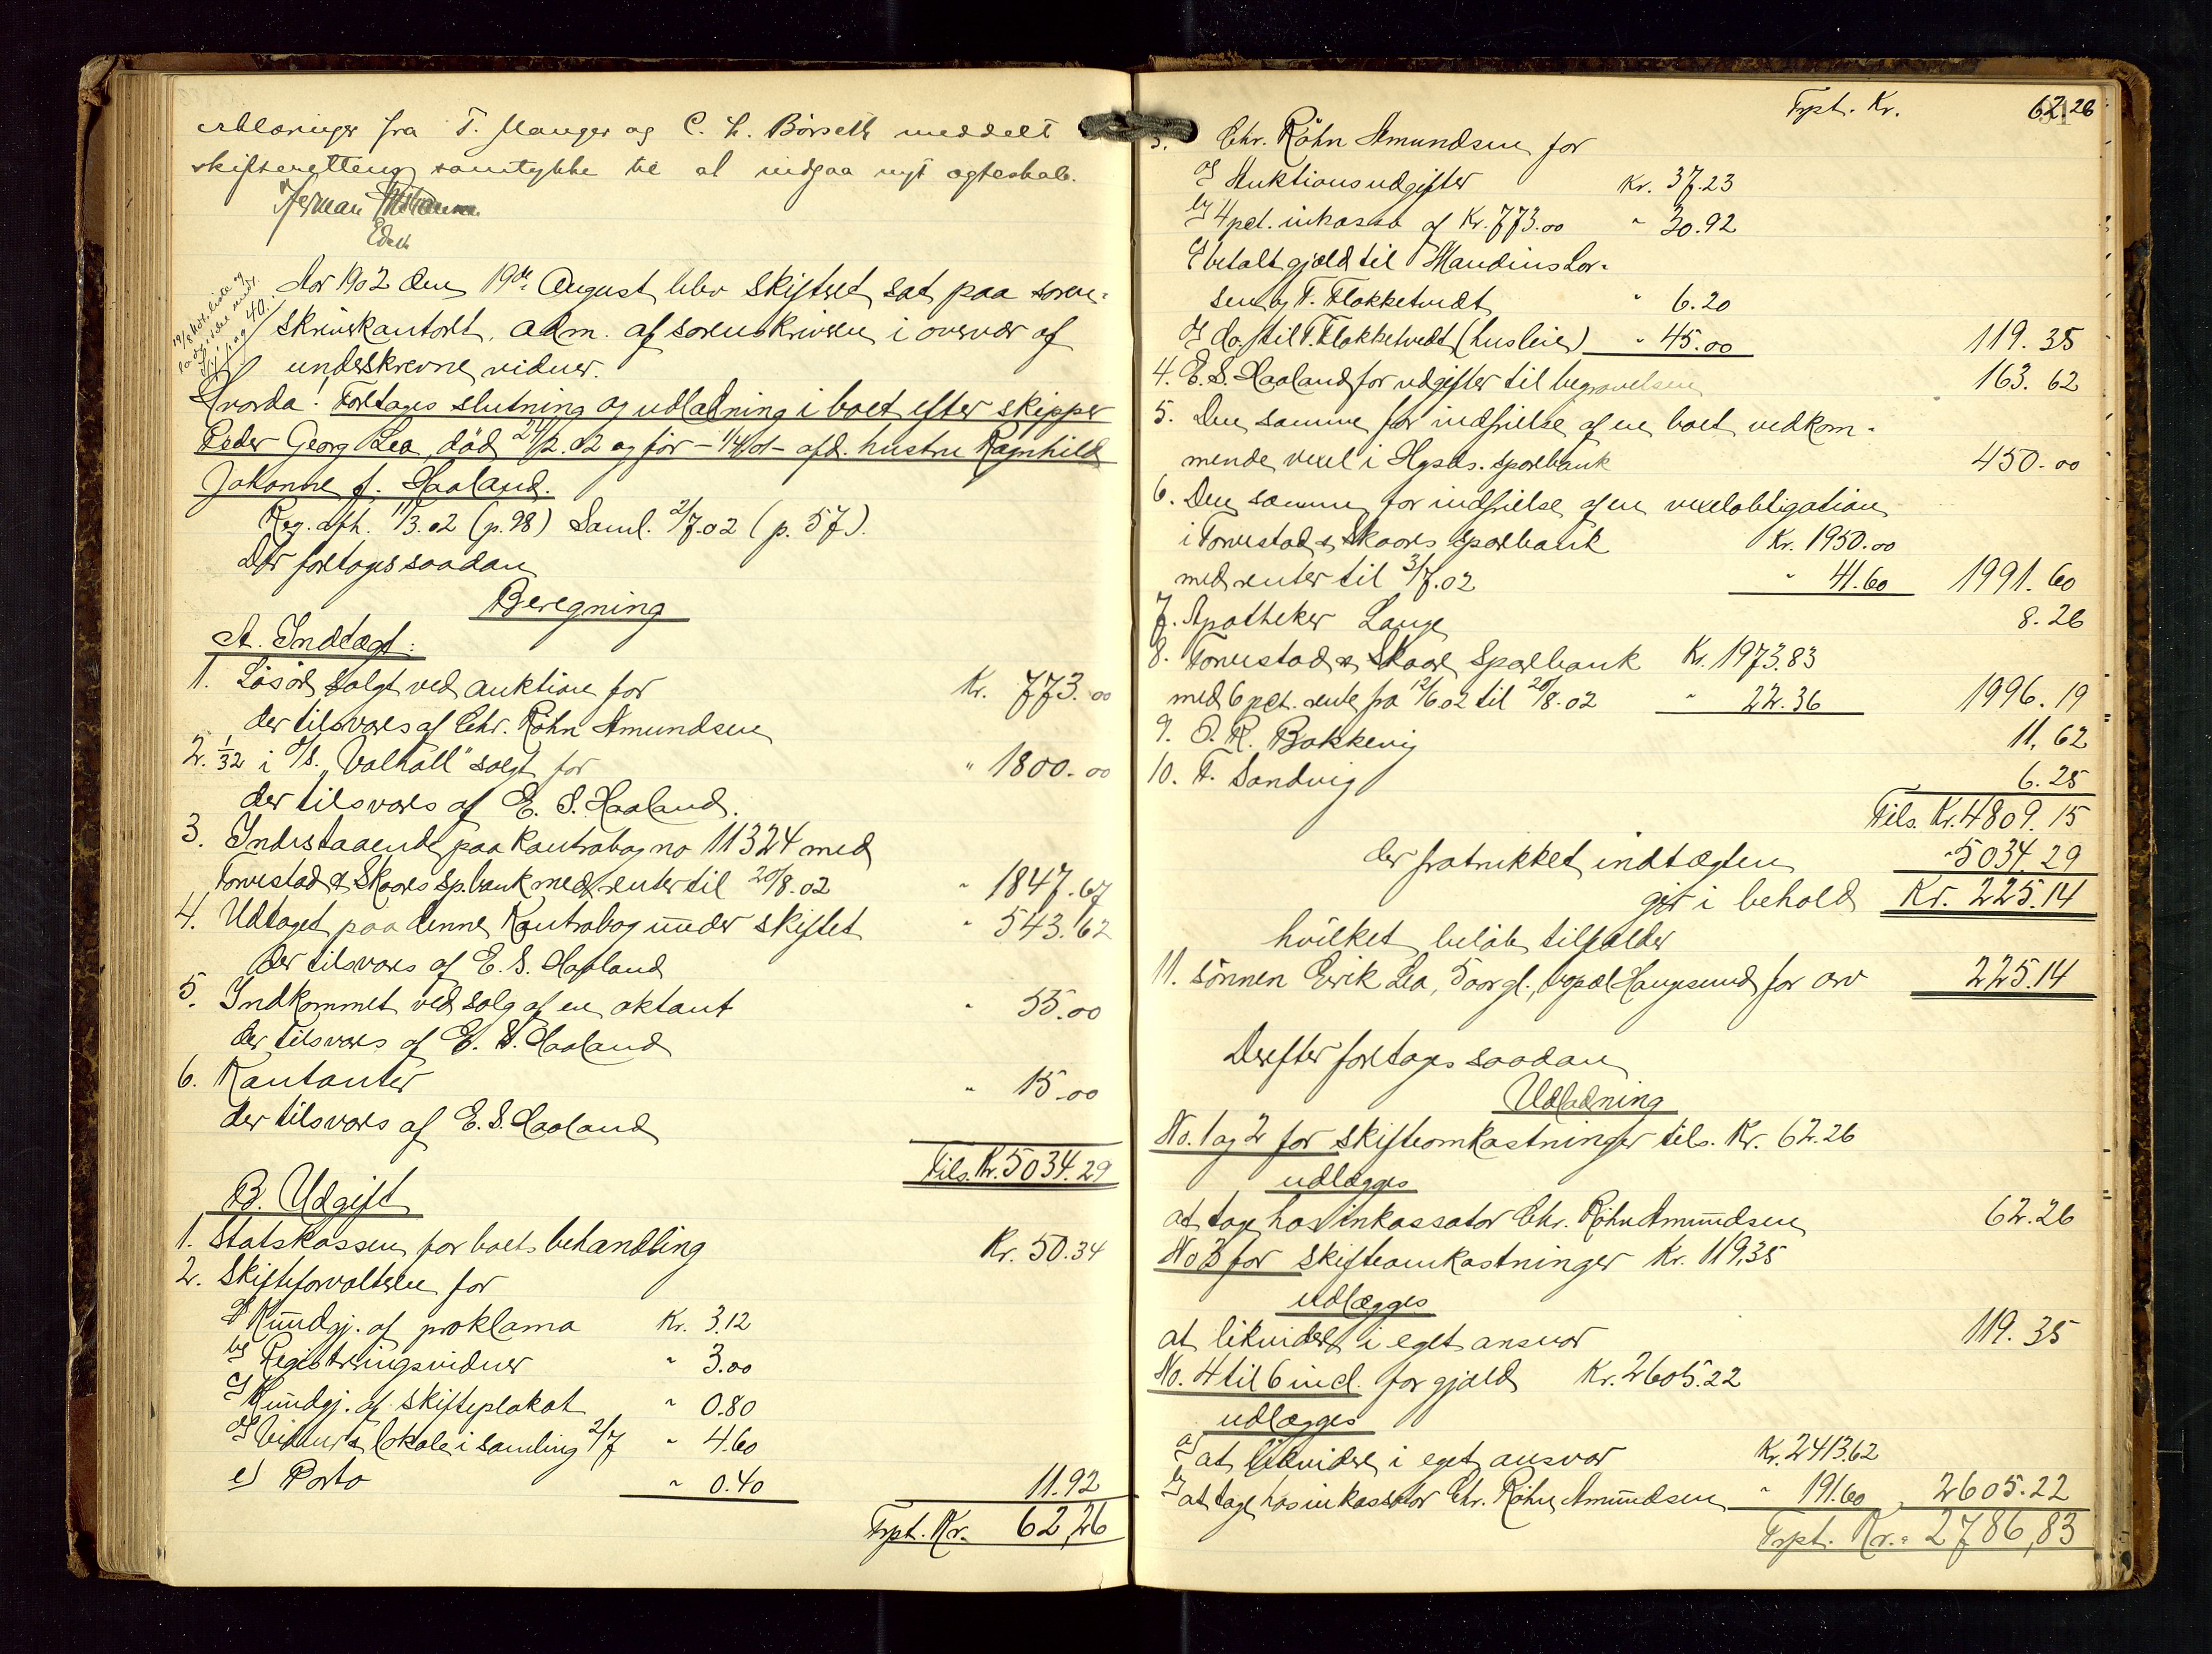 fra T. Mauger og C. L. Börseth meddelt
skifteretten samtykke til at indgaa nyt ægteskab.
Herman
Aar 1902 den 19de August blev skifteret sat paa soren-
skriverkontoret, adm. af sorenskriveren i overvær af
underskrevne vidner.
Hvorda! Foretages slutning og udlodning i boet efter skipper
Peder Georg Lea, död 24/2.02 og før - 1/4 01 - afd. hustru Ragnhild
Johanne f. Haaland.
Reg. afh. 11/3.02 (p. 98) Saml. 2/7.02 (p. 57).
Der foretages saadan
Beregning
A. Indtægt:
1. Lösöre solgt ved auktion for Kr. 773.00
der tilsvares af Chr. Röhn Amundsen
2. 1/32 i d/s. "Valhall" solgt for " 1800.00
der tilsvares af E. S. Haaland.
3. Indestaaende paa kontrabog no 11324 med
Torvestad & Skaares sp.bank med renter til 20/8.02 " 1847.67
4. Udtaget paa denne kontrabog under skiftet " 543.62
der tilsvares af E. S. Haaland
5. Indkommet ved salg af en oktant " 55.00
der tilsvares af E. S. Haaland
6. Kontanter " 15.00
der tilsvares af E. S. Haaland
Tils. Kr. 5034.29
B. Udgift
1. Statskassen for boets behandling Kr. 50.34
2. Skifteforvalteren for
a) Kundgj. af proklama Kr. 3.12
b) Registreringsvidner " 3.00
c) Kundgj. af skifteplakat " 0.80
d) Vidner & lokale i samling 2/7 " 4.60
e) Porto " 0.40 11.92
Trpt. Kr. 62,26
Trpt. Kr. 62.26
3. Chr. Röhn Amundsen for
a) Auktionsudgifter Kr. 37.23
b) 4 pct. inkasso af Kr. 773.00 " 30.92
c) betalt gjæld til Maudius Lor-
sen og T. Flokketvedt " 6.20
d) do. til T. Flokketvedt (husleie) " 45.00 119.35
4. E. S. Haaland for udgifter til begravelsen 163.62
5. Den samme for indfrielse af en boet vedkom-
mende vexel i Hgsds. sparebank 450.00
6. Den samme for indfrielse af en vexelobligation
i Torvestad & Skaares sparebank Kr. 1950.00
med renter til 3/7.02 " 41.60 1991.60
7. Apotheker Lange 8.26
8. Torvestad & Skaare Sparebank Kr. 1973.83
med 6 pct. rente fra 12/6 02 til 20/8.02 " 22.36 1996.19
9. O. R. Bakkevig 11,62
10. T. Sandvig 6.25
Tils. Kr. 4809.15
der fratrukket indtægten " 5034.29
gjør i behold Kr. 225.14
hvilket beløb tilfalder
11. sönnen Eirik Lea, 5 aar gl., bopæl Haugesund for arv 225.14
Derefter foretages saadan
Udlodning
No. 1 og 2 for skifteomkostninger tils. Kr. 62.26
udlægges
at tage hos inkassator Chr. Röhn Amundsen 62.26
No 3 for skifteomkostninger Kr. 119.35
udlægges
at likvidere i eget ansvar 119.35
No. 4 til 6 incl. for gjæld Kr. 2605.22
udlægges
a) at likvidere i eget ansvar Kr. 2413.62
b) at tage hos inkassator Chr. Röhn Amundsen " 191.60 2605.22
Trpt. Kr. 2786,83